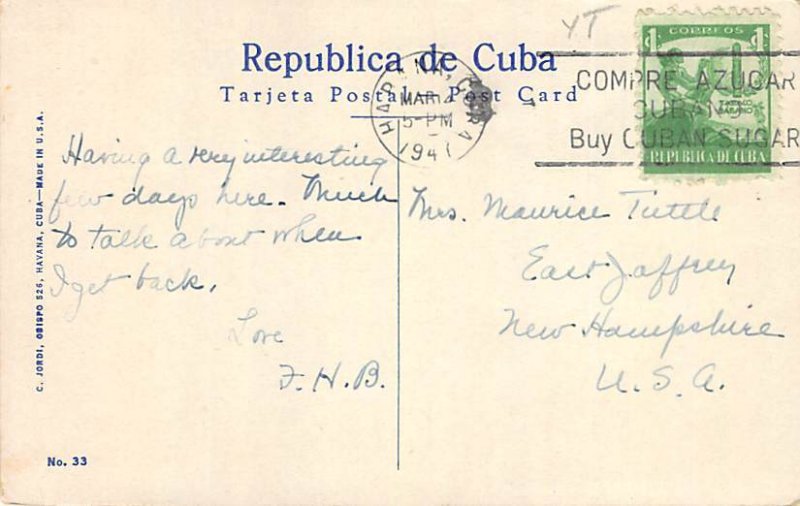 YT
Republica de Cuba
Tarjeta Postal — Post Card
HABANA, CUBA
MAR
5-PM
1941
COMPRE AZUCAR
CUBANO
Buy CUBAN SUGAR
CORREOS
1 1
TABACO
HABANO
REPUBLICA DE CUBA
Having a very interesting
few days here. Much
to talk about when
I get back.
Love
F.H.B.
Mrs. Maurice Tuttle
East Jaffrey
New Hampshire
U.S.A.
C. JORDI, OBISPO 526, HAVANA, CUBA—MADE IN U.S.A.
No. 33